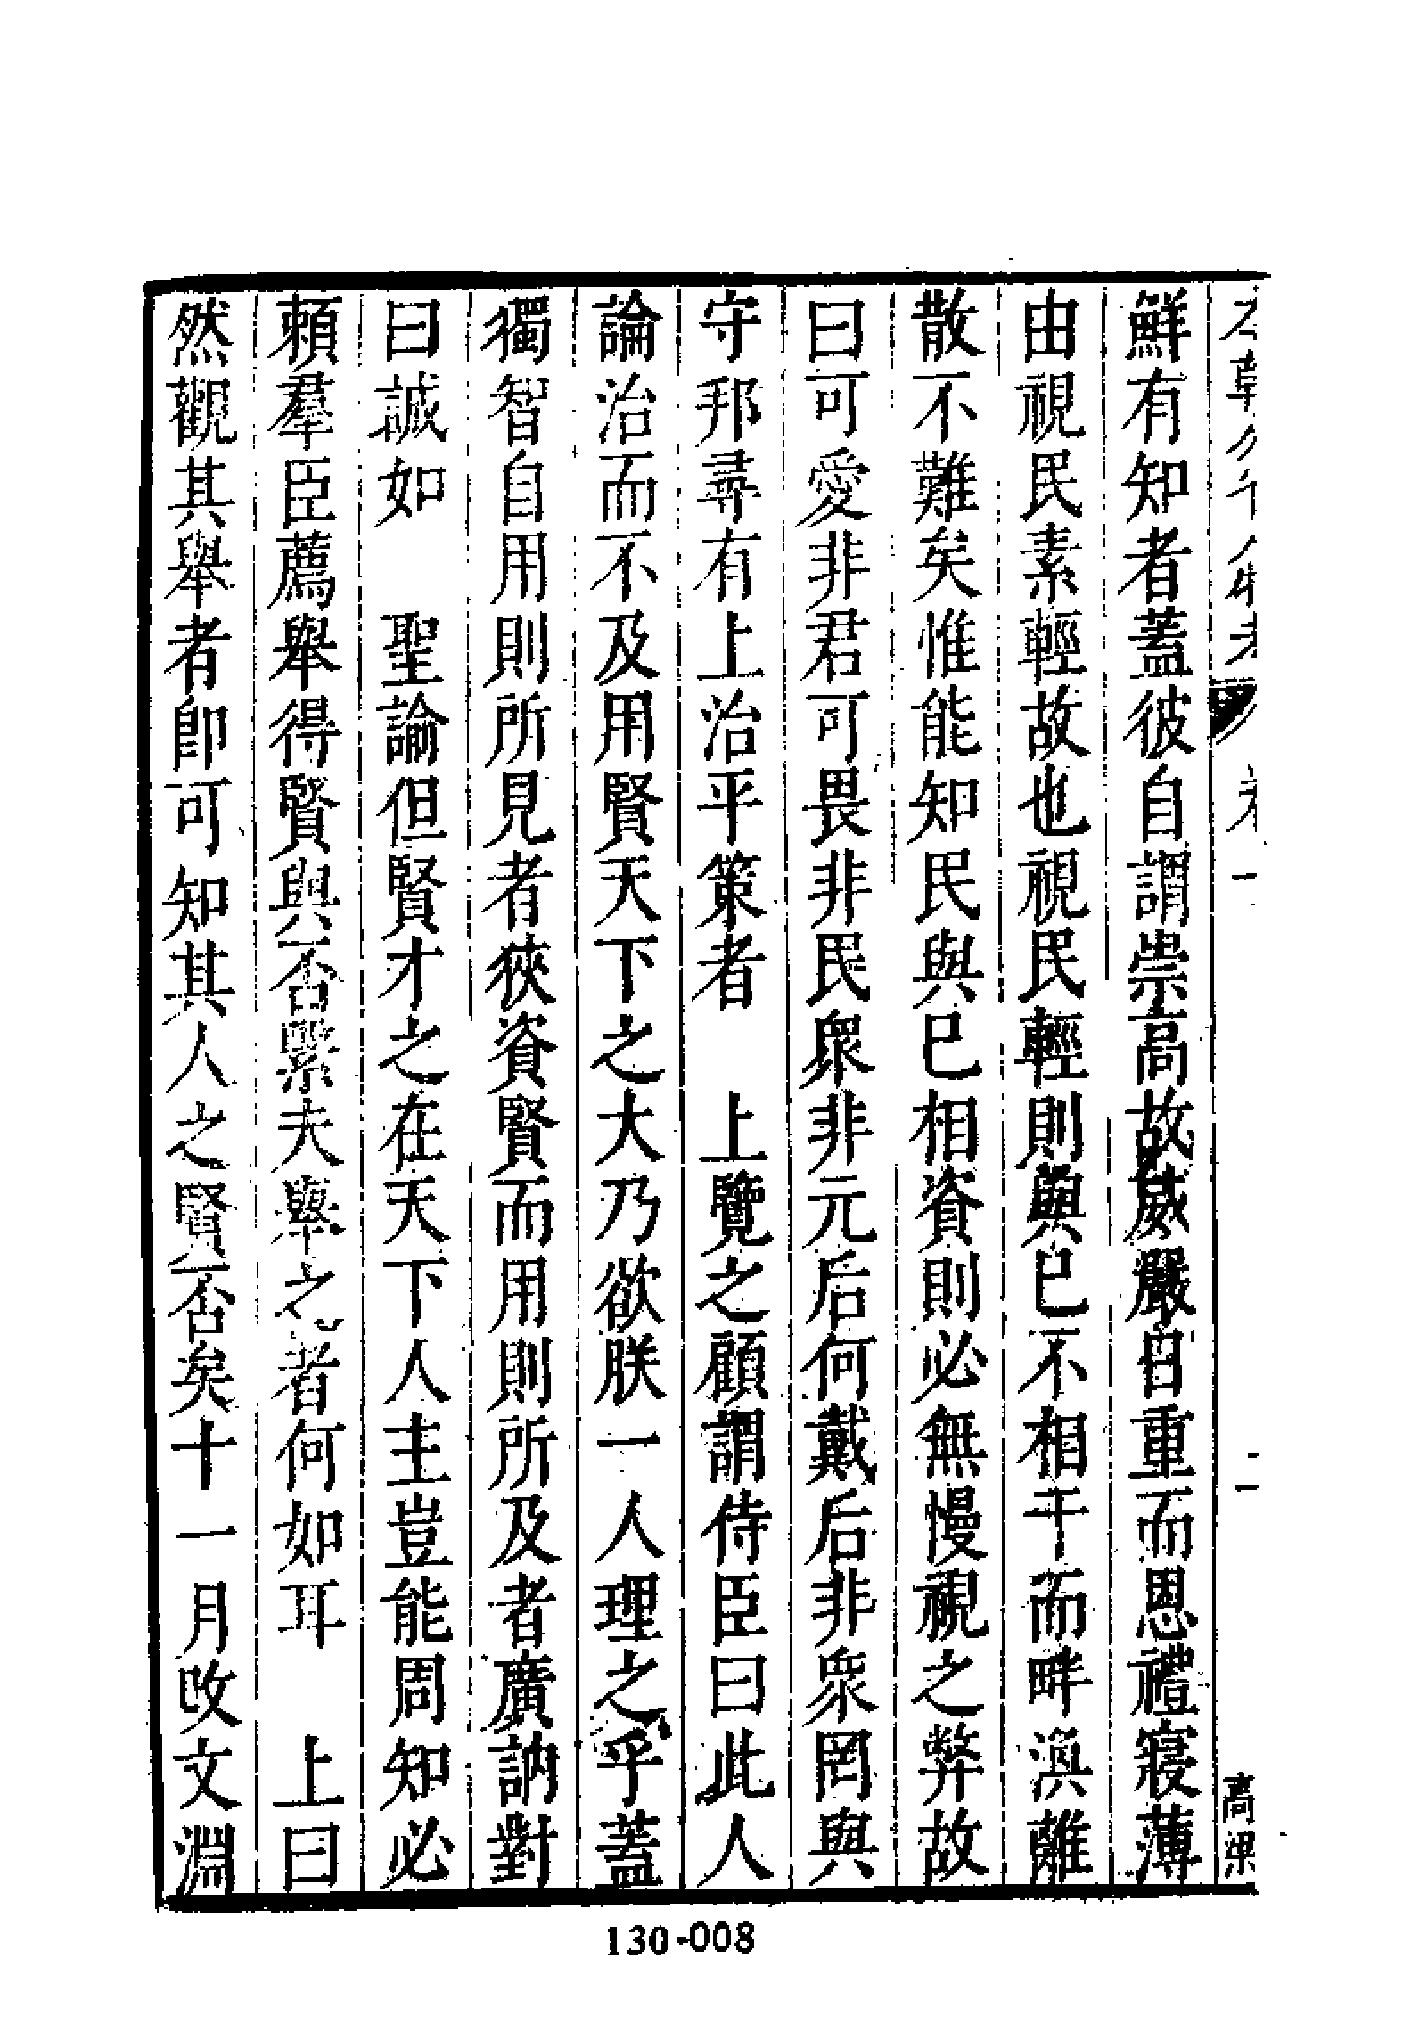 鮮有知者蓋彼自謂崇高故威嚴日重而恩禮寢薄
由視民素輕故也視民輕則與已不相干而畔渙離
散不難矣惟能知民與已相資則必無慢視之弊故
曰可愛非君可畏非民衆非元后何戴后非衆罔與
守邦尋有上治平策者　上覽之顧謂侍臣曰此人
論治而不及用賢天下之大乃欲朕一人理之乎蓋
獨智自用則所見者狹資賢而用則所及者廣訥對
曰誠如　聖諭但賢才之在天下人主豈能周知必
賴羣臣薦舉得賢與否繫夫舉之者何如耳　上曰
然觀其舉者卽可知其人之賢否矣十一月攺文淵
130-008